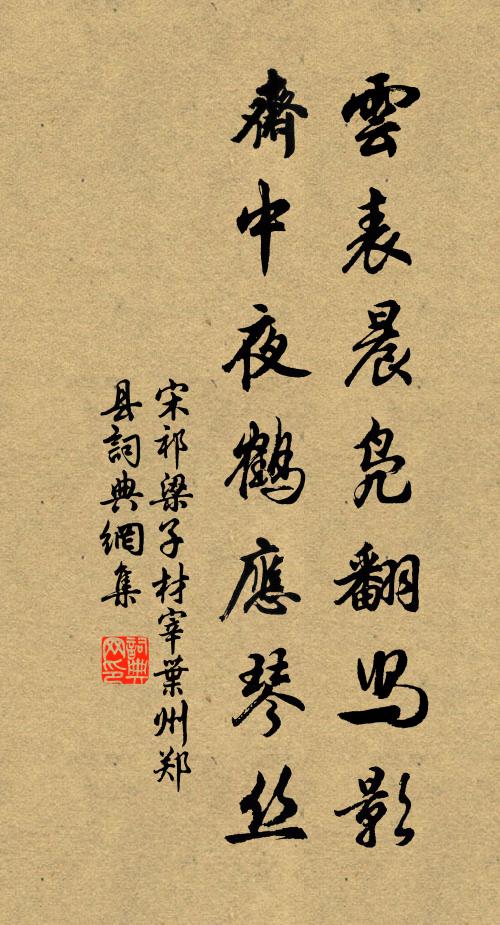 雲表晨凫翻舄影
齋中夜鶴應琴丝
宋祁梁子材宰葉州郑
县詞典網集
詞典网印